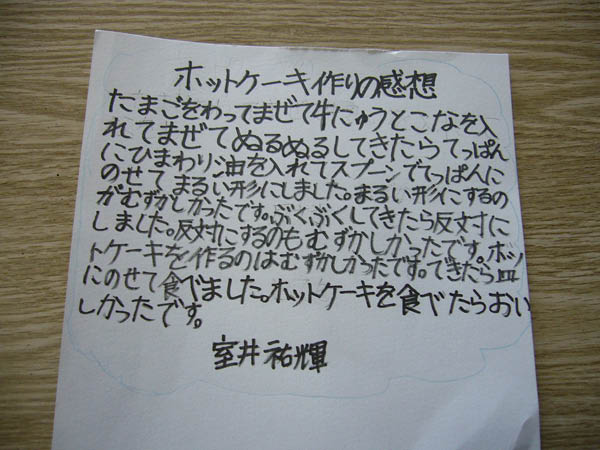 ホットケーキ作りの感想
たまごをわってまぜて牛にゅうとこなを入
れてまぜてぬるぬるしてきたらてっぱん
にひまわり油を入れてスプーンでてっぱんに
のせてまるい形にしました。まるい形にするの
がむずかしかったです。ぶくぶくしてきたら反対に
しました。反対にするのもむずかしかったです。ホッ
トケーキを作るのはむずかしかったです。できたら皿
にのせて食べました。ホットケーキを食べたらおい
しかったです。
室井祐輝